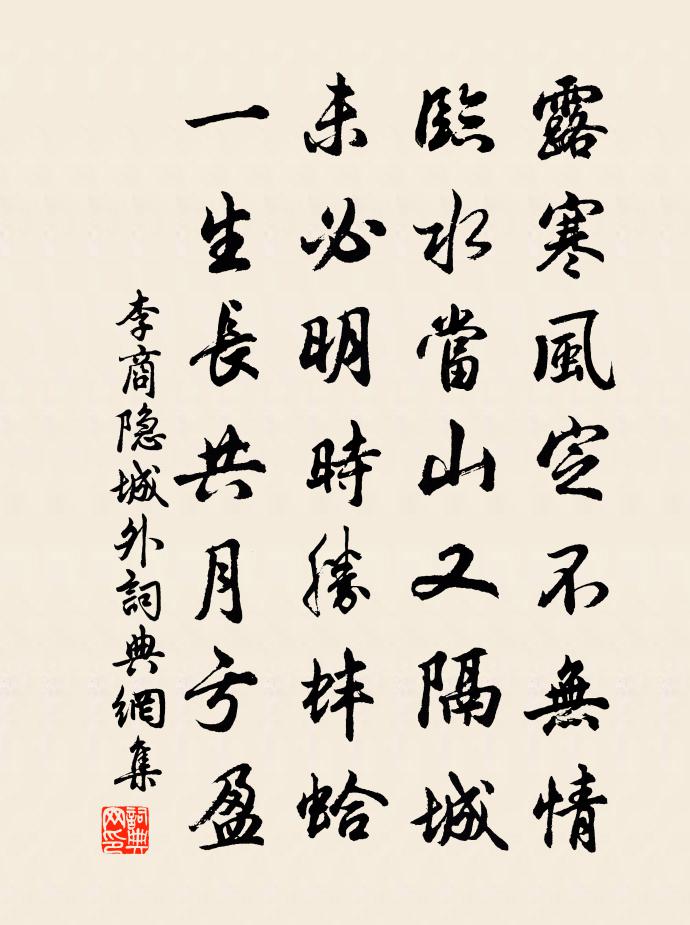 露寒風定不無情
臨水當山又隔城
未必明時勝蚌蛤
一生長共月亏盈
李商隐城外詞典網集
詞典网印